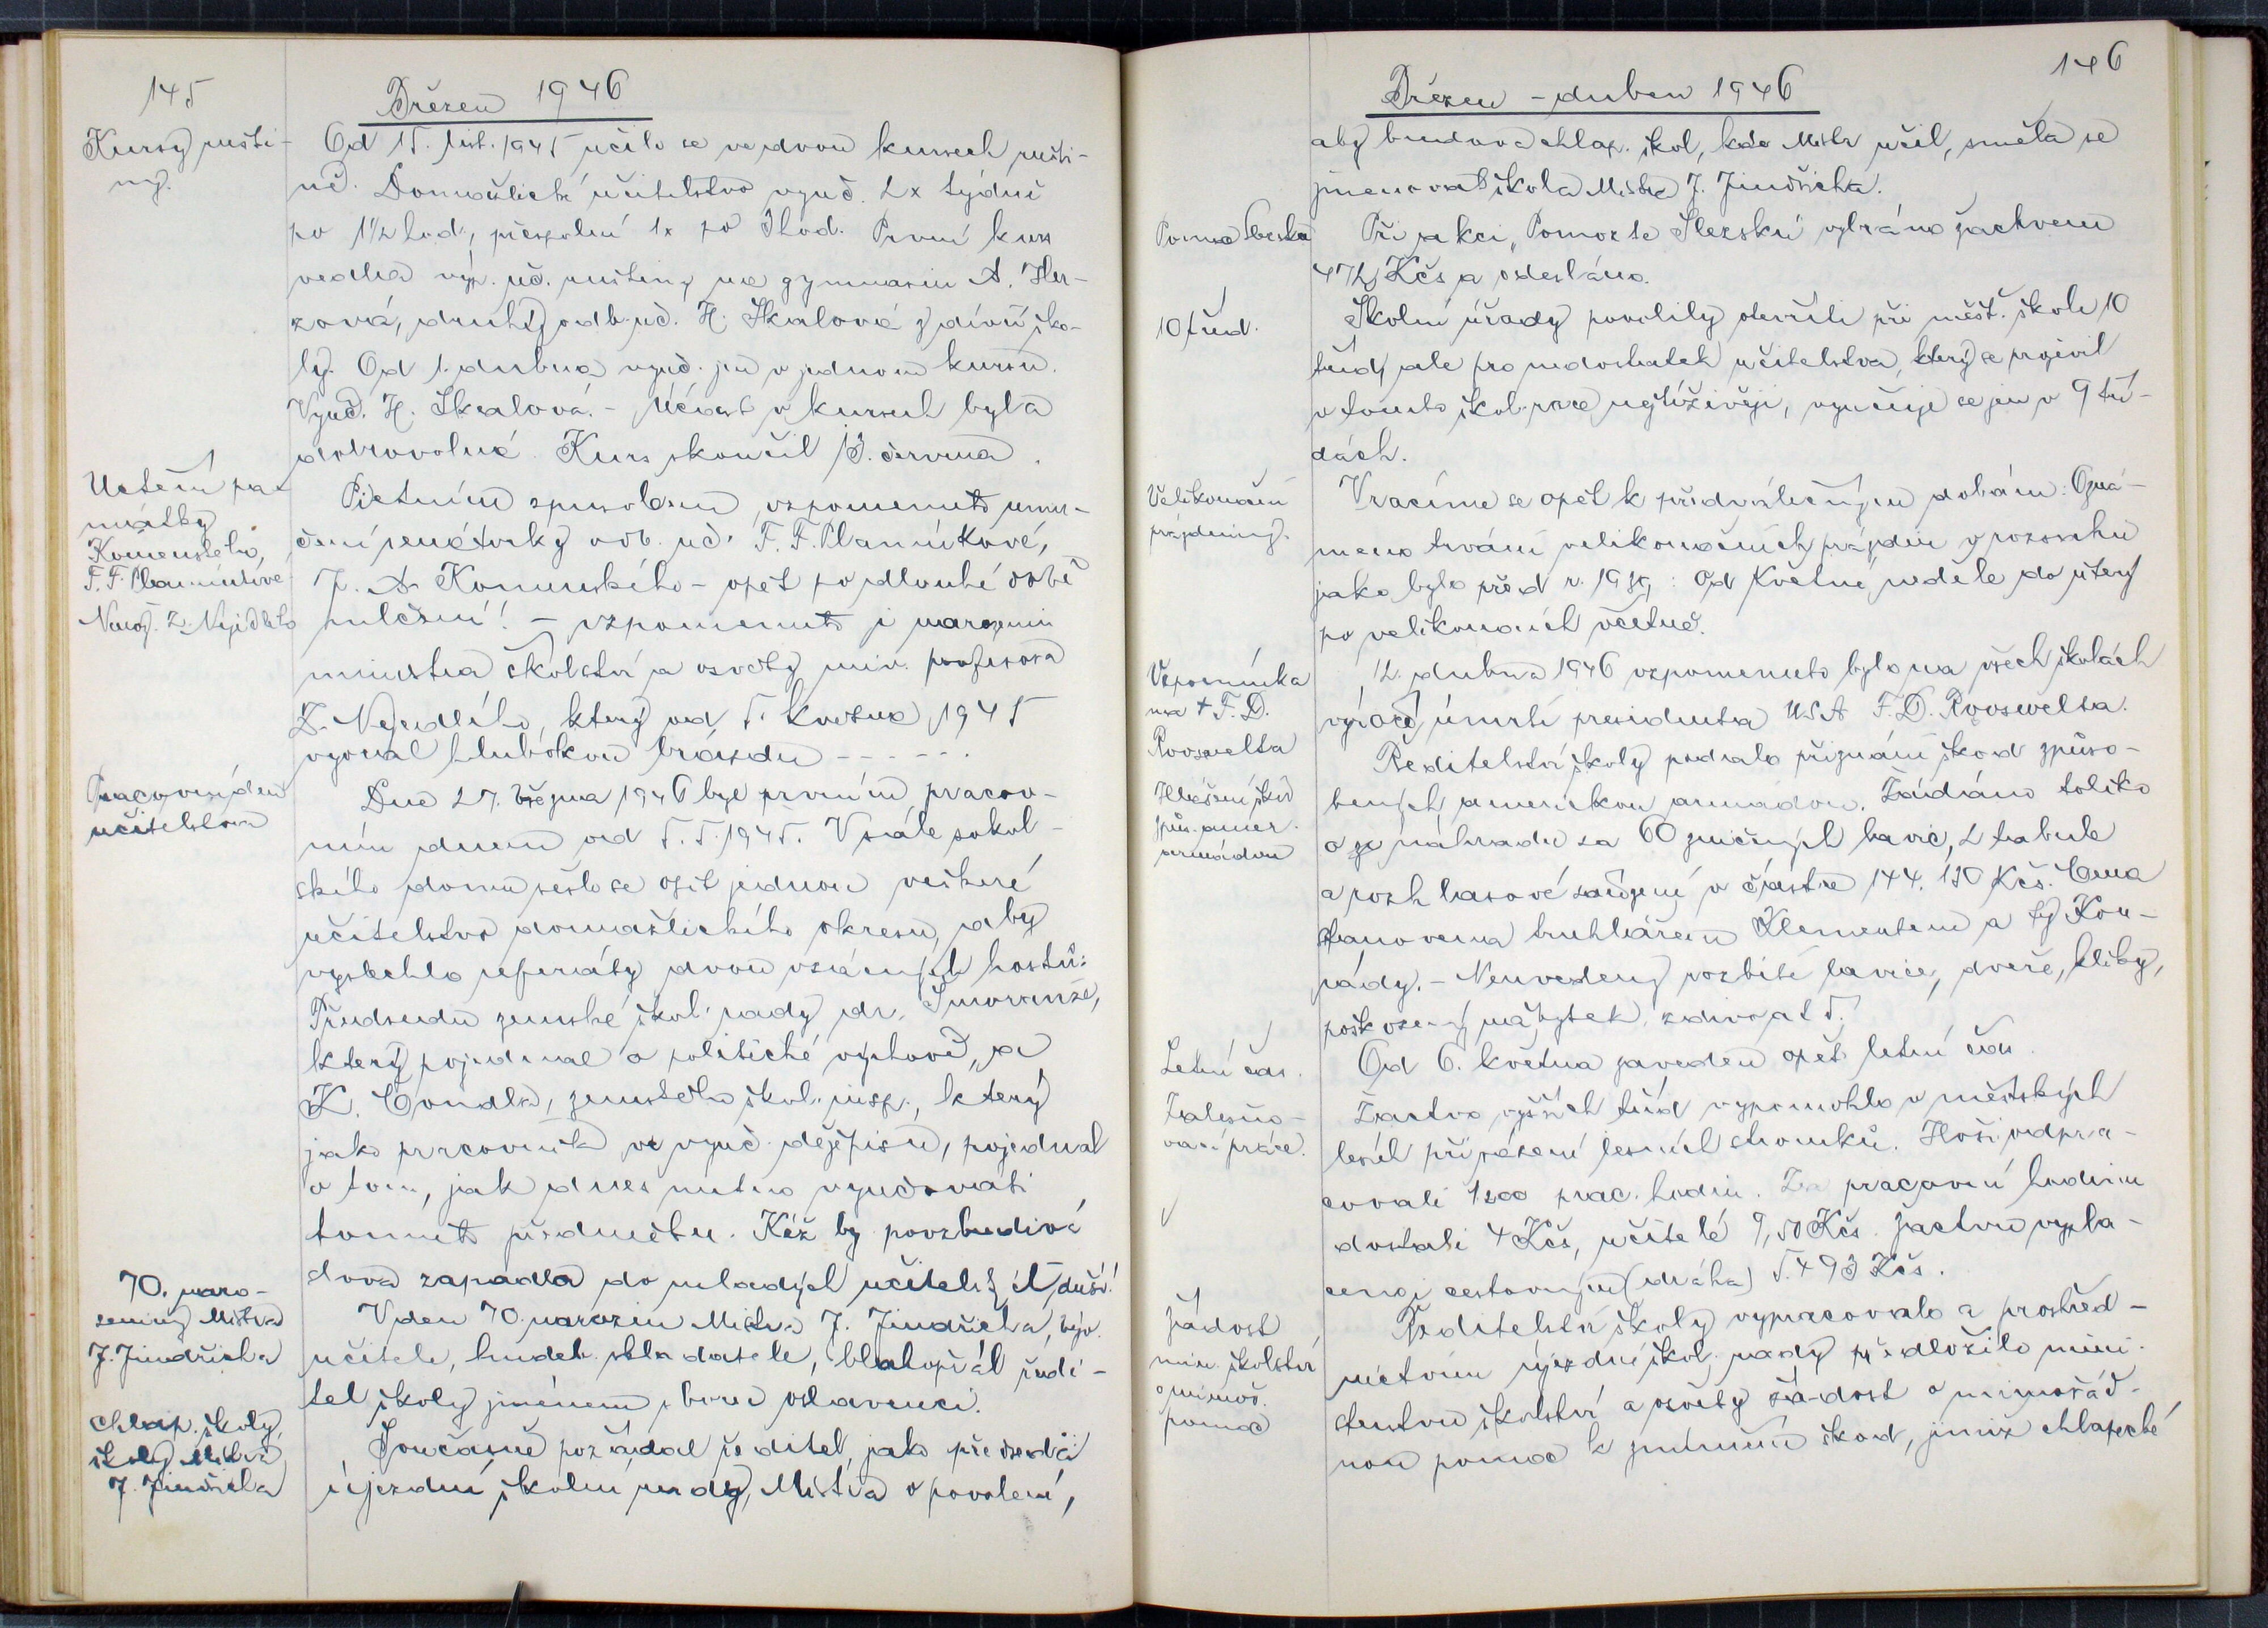 145
Březen 1946
Kursy rušti-
ny.
Od 15. list. 1945 učilo se ve dvou kursech rušti-
ně. Domažlické učitelstvo vyuč. 2x týdně
po 1½ hod., přespolní 1x po 3 hod. První kurs
vedla výp. uč. ruštiny na gymnasiu A. Her-
zová, druhý odb. uč. H. Skalová z dívčí ško-
ly. Od 1. dubna vyuč. jen v jednom kursu.
Vyuč. H. Skalová. - Účast v kursech byla
dobrovolná. Kurs skončil 13. června.
Uctění pa-
mátky
Komenského,
F. F. Plamínkové
Naroz. Z. Nejedlého
Pietním způsobem vzpomenuto umu-
čení senátorky odb. uč. F. F. Plamínkové,
J. A. Komenského - opět po dlouhé době
mlčení! - vzpomenuto i narozenin
ministra školství a osvěty univ. profesora
Z. Nejedlého, který od 5. května 1945
vyoral hlubokou brázdu - - - - - .
Pracovní den
učitelstva
Dne 27. března 1946 byl prvním pracov-
ním dnem od 5. 5. 1945. V sále sokol-
ského domu sešlo se opět jednou veškeré
učitelstvo domažlického okresu, aby
vyslechlo referáty dvou vzácných hostů:
Předsedu zemské škol. rady dr. Smoranze,
který pojednal o politické výchově, a
K. Condla, zemského škol. insp., který
jako pracovník ve vyuč. dějepisu, pojednal
o tom, jak dnes nutno vyučovati
tomuto předmětu. Kéž by povzbudivá
slova zapadla do mladých učitelských duší!
70. naro-
zeniny Mistra
J. Jindřicha
V den 70. narozenin Mistra J. Jindřicha, býv.
učitele, hudeb. skladatele, blahopřál ředi-
tel školy jménem sboru oslavenci.
Chlap. školy,
školy Mistra
J. Jindřicha
Současně požádal ředitel, jako předseda
újezdní školní rady, Mistra o povolení,
146
Březen - duben 1946
aby budova chlap. škol, kde Mistr učil, směla se
jmenovat škola Mistra J. Jindřicha.
Pomoc Slezsku
Při akci „Pomozte Slezsku" vybráno žactvem
472 Kčs a odesláno.
10 tříd.
Školní úřady povolily otevříti při měšť. škole 10
tříd, ale pro nedostatek učitelstva, který se projevil
v tomto škol. roce nejtíživěji, vyučuje se jen v 9 tří-
dách.
Velikonoční
prázdniny.
Vracíme se opět k předválečným dobám: Ozná-
meno trvání velikonočních prázdnin v rozsahu
jako bylo před r. 1939: Od Květné neděle do úterý
po velikonocích včetně.
Vzpomínka
na † F. D.
Roosvelta
12. dubna 1946 vzpomenuto bylo na všech školách
výročí úmrtí presidenta USA F. D. Rooswelta.
Hlášení škod
způs. amer.
armádou
Ředitelství školy podalo přiznání škod způso-
bených americkou armádou. Žádáno toliko
o náhradu za 60 zničených lavic, 2 tabule
a rozhlasové zařízení v částce 144.130 Kčs. Cena
stanovena truhlářem Klementem a fy Kon-
rády. - Neuvedeny rozbité lavice, dveře, kliky,
poškozený nábytek, zdivo atd.
Letní čas.
Od 6. května zaveden opět letní čas.
Zalesňo-
vací práce.
Žactvo vyšších tříd vypomohlo v městských
lesích při sázení lesních stromků. Hoši odpra-
covali 1200 prac. hodin. Za pracovní hodinu
dostali 4 Kčs, učitelé 9,50 Kčs. Žactvu vypla-
ceno i cestovným (dráha) 5.493 Kčs.
Žádost
min. školství
o mimoř.
pomoc
Ředitelství školy vypracovalo a prostřed-
nictvím újezdní škol. rady předložilo mini-
sterstvu školství a osvěty žádost o mimořád-
nou pomoc k zmírnění škod, jimiž chlapecké